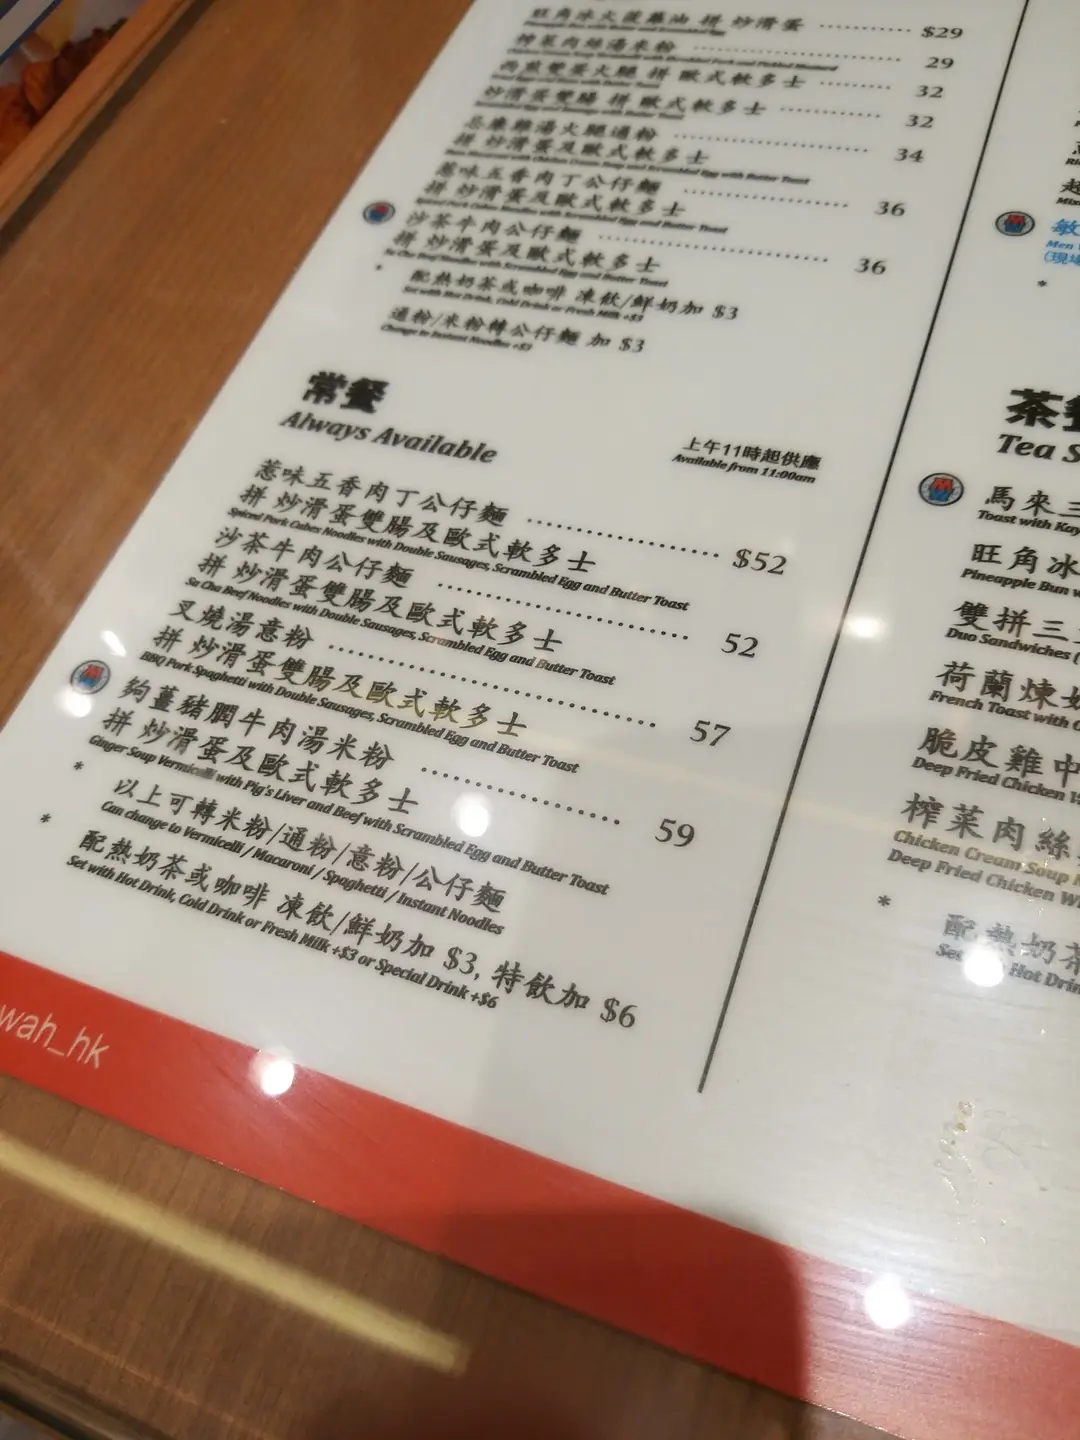 炒滑蛋 $29
榨菜肉絲湯米粉 29
Chicken Cream Soup Vermicelli with Shredded Pork and Pickled Mustard
西煎雙蛋火腿 拼 歐式軟多士 32
炒滑蛋雙腸 拼 歐式軟多士 32
Scrambled Egg and Sausage with Butter Toast
忌廉雞湯火腿通粉 34
拼 炒滑蛋及歐式軟多士
Ham Macaroni with Chicken Cream Soup and Scrambled Egg with Butter Toast
惹味五香肉丁公仔麵 36
拼 炒滑蛋及歐式軟多士
Spiced Pork Cubes Noodles with Scrambled Egg and Butter Toast
沙茶牛肉公仔麵 36
拼 炒滑蛋及歐式軟多士
Sa Cha Beef Noodles with Scrambled Egg and Butter Toast
* 配熱奶茶或咖啡 凍飲/鮮奶加 $3
Set with Hot Drink, Cold Drink or Fresh Milk +$3
通粉/米粉轉公仔麵 加 $3
Change to Instant Noodles +$3
常餐
Always Available
上午11時起供應
Available from 11:00am
惹味五香肉丁公仔麵 $52
拼 炒滑蛋雙腸及歐式軟多士
Spiced Pork Cubes Noodles with Double Sausages, Scrambled Egg and Butter Toast
沙茶牛肉公仔麵 52
拼 炒滑蛋雙腸及歐式軟多士
Sa Cha Beef Noodles with Double Sausages, Scrambled Egg and Butter Toast
叉燒湯意粉 57
拼 炒滑蛋雙腸及歐式軟多士
BBQ Pork Spaghetti with Double Sausages, Scrambled Egg and Butter Toast
夠薑豬膶牛肉湯米粉 59
拼 炒滑蛋及歐式軟多士
Ginger Soup Vermicelli with Pig's Liver and Beef with Scrambled Egg and Butter Toast
* 以上可轉米粉/通粉/意粉/公仔麵
Can change to Vermicelli / Macaroni / Spaghetti / Instant Noodles
* 配熱奶茶或咖啡 凍飲/鮮奶加 $3, 特飲加 $6
Set with Hot Drink, Cold Drink or Fresh Milk +$3 or Special Drink +$6
wah_hk
敏
Men
(現場
茶餐
Tea S
馬來三
Toast with Kay
旺角冰
Pineapple Bun w
雙拼三
Duo Sandwiches (
荷蘭煉奶
French Toast with C
脆皮雞中
Deep Fried Chicken W
榨菜肉絲
Chicken Cream Soup
Deep Fried Chicken Wi
* 配熱奶茶
Set Hot Drin